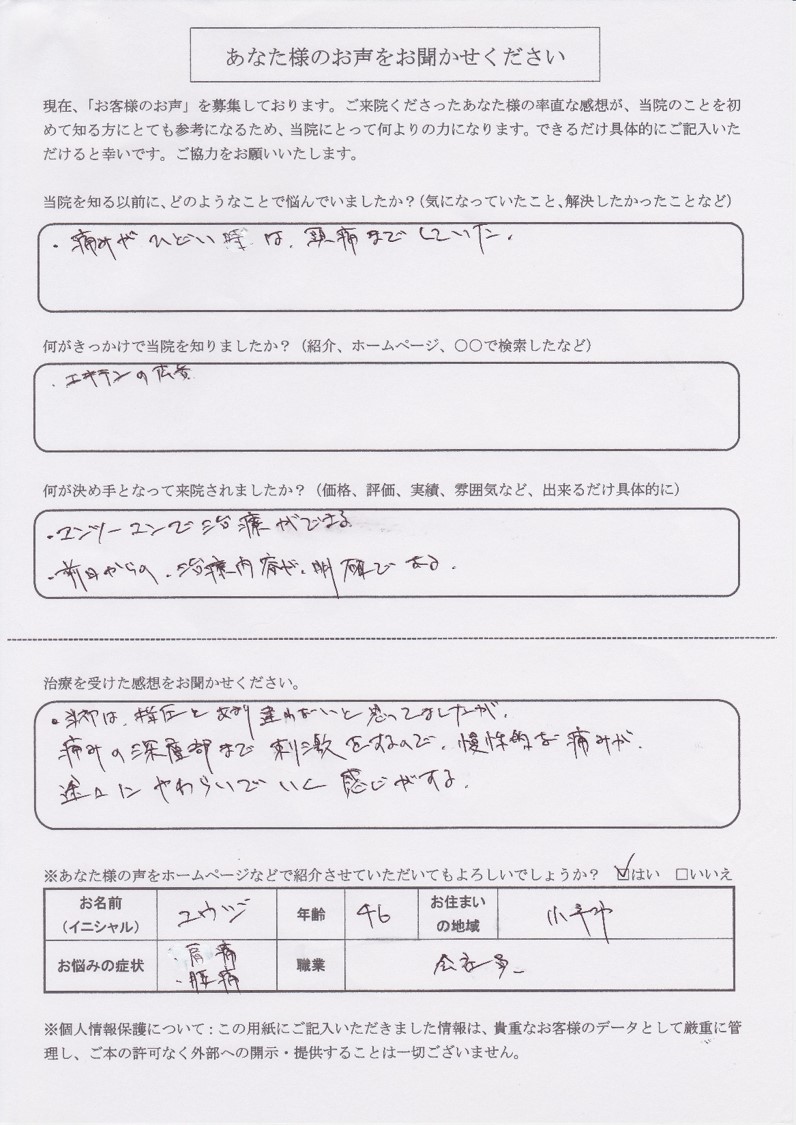 あなた様のお声をお聞かせください
現在、「お客様のお声」を募集しております。ご来院くださったあなた様の率直な感想が、当院のことを初
めて知る方にとても参考になるため、当院にとって何よりの力になります。できるだけ具体的にご記入いた
だけると幸いです。ご協力をお願いいたします。
当院を知る以前に、どのようなことで悩んでいましたか？（気になっていたこと、解決したかったことなど）
・痛みがひどい時は、頭痛までしていた。
何がきっかけで当院を知りましたか？（紹介、ホームページ、〇〇で検索したなど）
・エキテンの広告
何が決め手となって来院されましたか？（価格、評価、実績、雰囲気など、出来るだけ具体的に）
・マンツーマンで治療ができる
・前日からの、治療内容が、明確である。
治療を受けた感想をお聞かせください。
・当初は、指圧とあまり違わないと思ってましたが、
痛みの深層部まで刺激をするので、慢性的な痛みが、
徐々にやわらいでいく感じがする。
※あなた様の声をホームページなどで紹介させていただいてもよろしいでしょうか？ ☑はい □いいえ
お名前（イニシャル） ユウジ 年齢 46 お住まいの地域
お悩みの症状 ・肩痛 ・腰痛 職業 会社員
※個人情報保護について：この用紙にご記入いただきました情報は、貴重なお客様のデータとして厳重に管
理し、ご本の許可なく外部への開示・提供することは一切ございません。